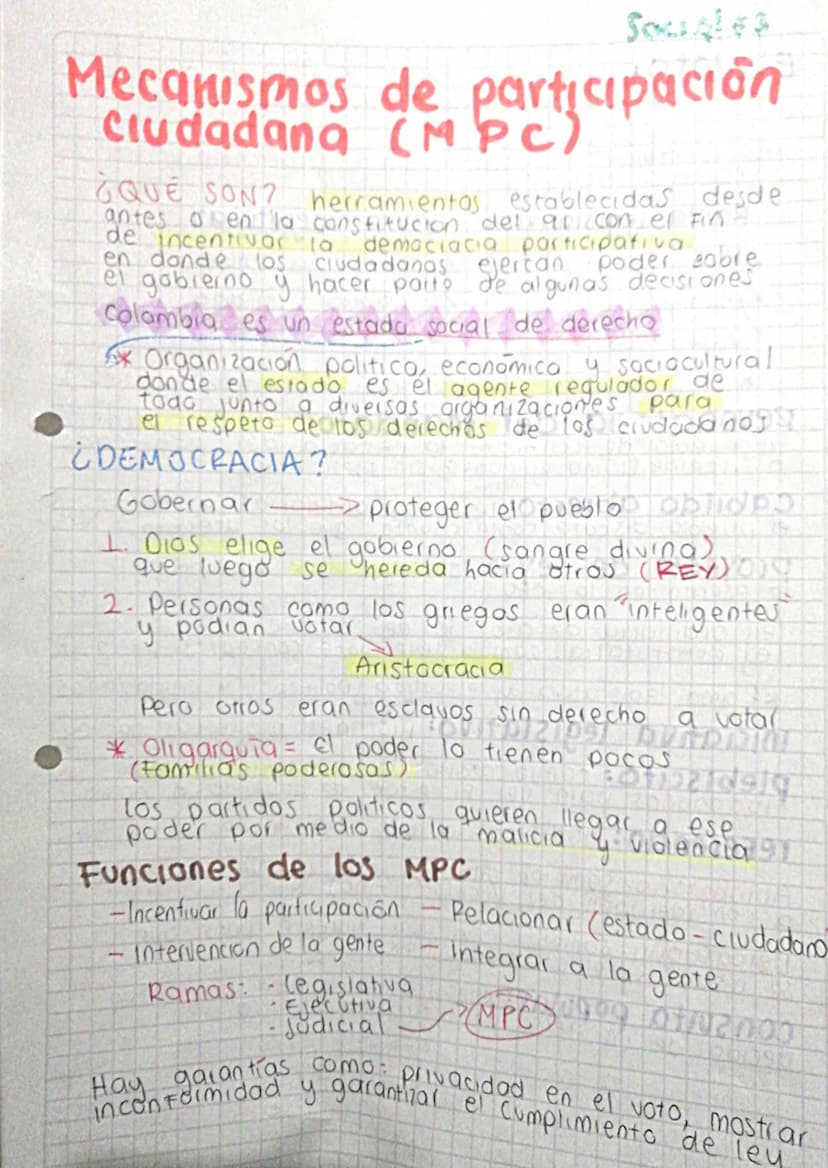 Sociales
Mecanismos de participación
ciudadana (MPC)
¿QUÉ SON? herramientas establecidas desde
antes o en la constitucion del 91 con el fin
de incentivar la democracia participativa
en donde los ciudadanos ejerzan poder sobre
el gobierno y hacer parte de algunas decisiones
Colombia es un estado social de derecho
* Organización politica, económica y sociocultural
donde el estado es el agente regulador de
todo junto a diversas organizaciones para
el respeto de los derechos de los ciudadanos
¿DEMOCRACIA?
Gobernar → proteger el pueblo
1. Dios elige el gobierno (sangre divina)
que luego se hereda hacia otros (REY)
2. Personas como los griegos eran "inteligentes"
y podian votar
Aristocracia
Pero otros eran esclavos sin derecho a votar
* Oligarquia = el poder lo tienen pocos
(Familias poderosas)
los partidos politicos quieren llegar a ese
poder por medio de la malicia y violencia
Funciones de los MPC
- Incentivar la participación - Relacionar (estado - ciudadano
- intervencion de la gente - integrar a la gente
Ramas: · legislativa
· Ejecutiva
· judicial → MPC
Hay garantías como: privacidad en el voto, mostrar
inconformidad y garantizar el cumplimiento de ley